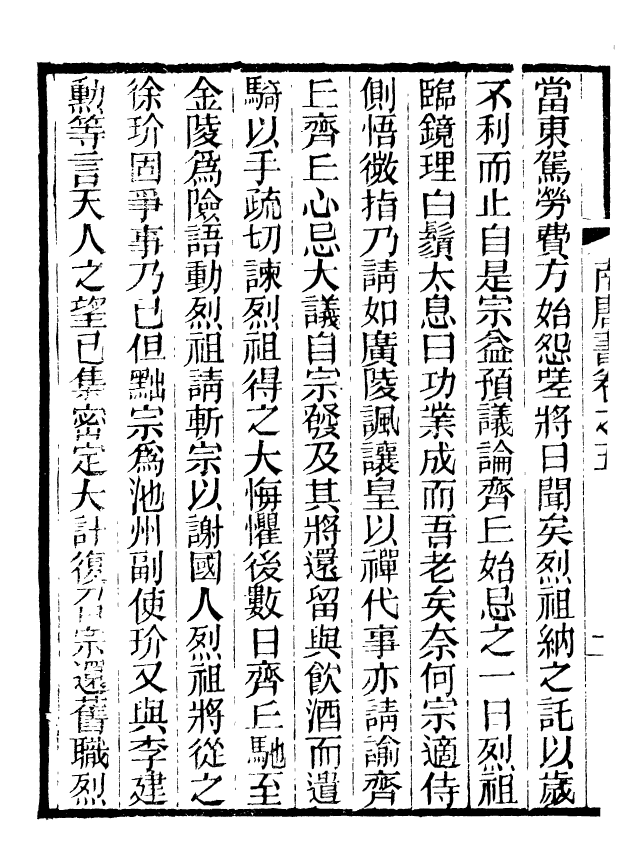 南唐書卷之五
二
當東駕勞費方始怨嗟將日聞矣烈祖納之託以歲
不利而止自是宗益預議論齊丘始忌之一日烈祖
臨鏡理白鬚太息曰功業成而吾老矣奈何宗適侍
側悟微指乃請如廣陵諷讓皇以禪代事亦請諭齊
丘齊丘心忌大議自宗發及其將還留與飲酒而遣
騎以手疏切諫烈祖得之大悔懼後數日齊丘馳至
金陵爲險語動烈祖請斬宗以謝國人烈祖將從之
徐玠固爭事乃已但黜宗爲池州副使玠又與李建
勳等言天人之望已集密定大計復召宗還舊職烈